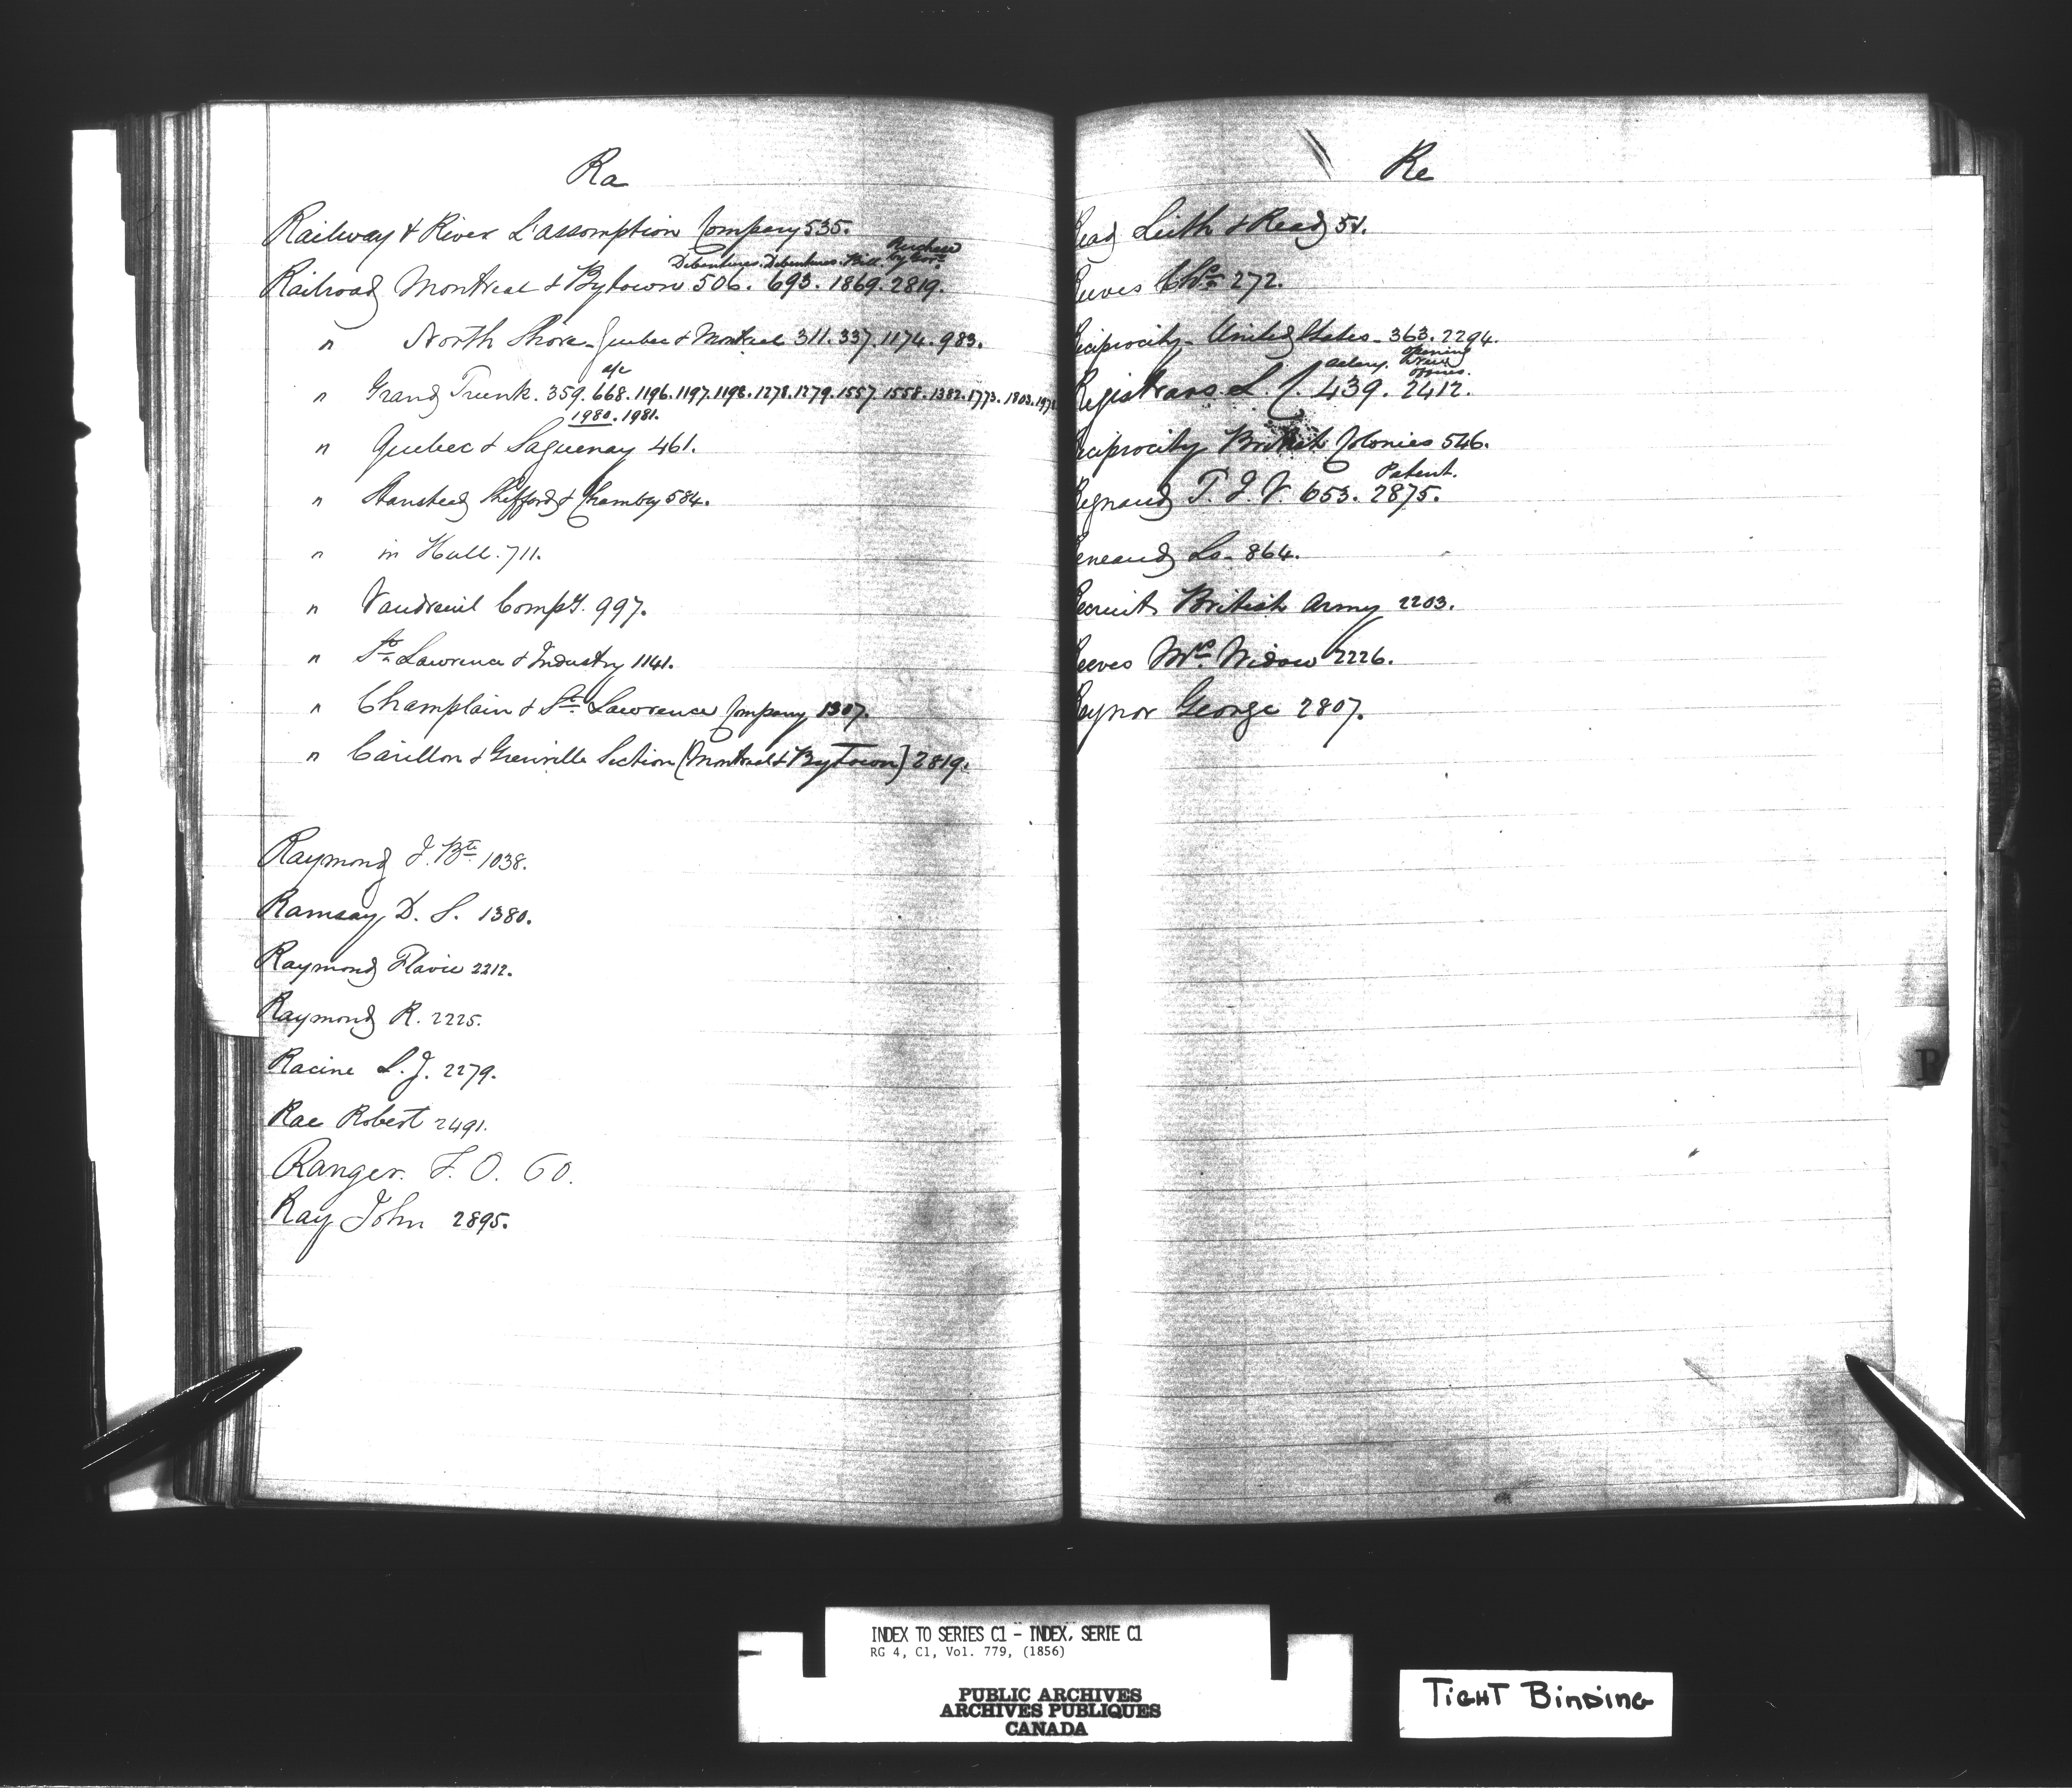 Ra
Railway & River L'assomption Company 535.
Debentures. Debentures. Bill. Purchase by Govt.
Railroad Montreal & Bytown 506. 693. 1869. 2819.
" North Shore - Quebec & Montreal 311. 337. 1174. 983.
a/c
" Grand Trunk. 359. 668. 1196. 1197. 1198. 1278. 1279. 1557. 1558. 1382. 1773. 1803.
1980. 1981.
" Quebec & Saguenay 461.
" Stanstead Shefford & Chambly 584.
" in Hull. 711.
" Vaudreuil Compy. 997.
" St. Lawrence & Industry 1141.
" Champlain & St. Lawrence Company 1307.
" Carillon & Grenville Section (Montreal & Bytown) 2819.
Raymond J. Bte 1038.
Ramsay D. S. 1380.
Raymond Flavie 2212.
Raymond R. 2225.
Racine L. J. 2279.
Rae Robert 2491.
Ranger. F. O. 60.
Ray John 2895.
Re
ead Leith & Read 51.
eeves Chs. 272.
eciprocity - United States - 363. 2294.
salary. opening offices.
Registrars L. C. 439. 2412.
eciprocity British Colonies 546.
Patent.
egnaud T. J. V. 653. 2875.
eneaud Ls. 864.
ecruit British Army 2203.
eeves Mrs. Widow 2226.
eynor George 2807.
P
INDEX TO SERIES C1 - INDEX, SERIE C1
RG 4, C1, Vol. 779, (1856)
PUBLIC ARCHIVES
ARCHIVES PUBLIQUES
CANADA
TIGHT BINDING